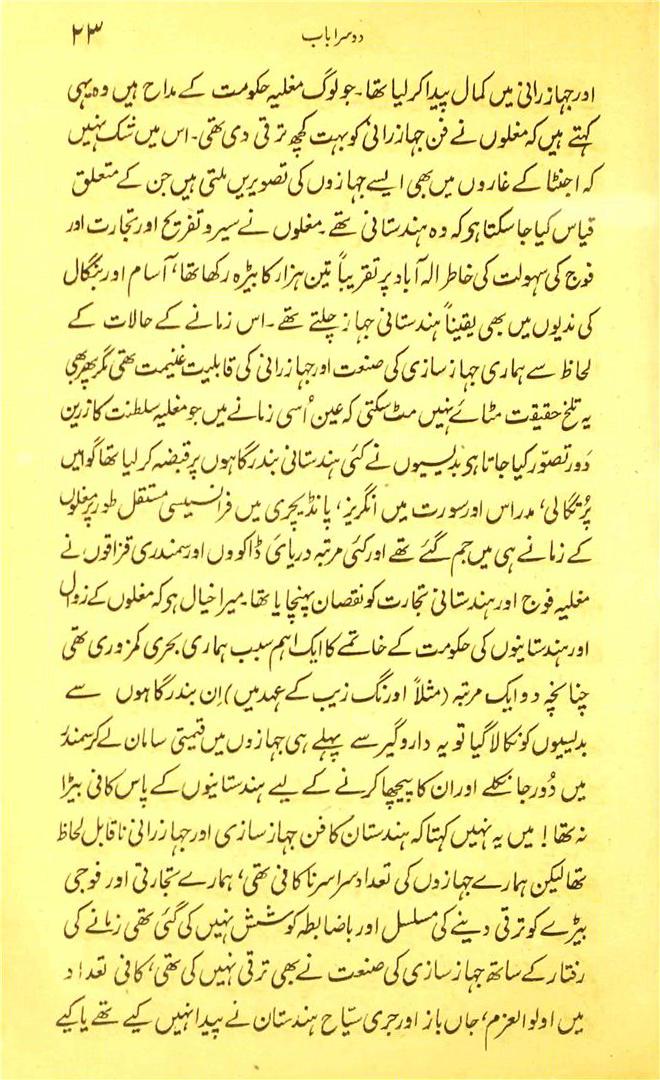 دوسرا باب ۲۳
اور جہازرانی میں کمال پیدا کر لیا تھا۔ جو لوگ مغلیہ حکومت کے مداح ہیں وہ یہی
کہتے ہیں کہ مغلوں نے فن جہازرانی کو بہت کچھ ترقی دی تھی۔ اس میں شک نہیں
کہ اجنٹا کے غاروں میں بھی ایسے جہازوں کی تصویریں ملتی ہیں جن کے متعلق
قیاس کیا جا سکتا ہو کہ وہ ہندستانی تھے۔ مغلوں نے سیر و تفریح اور تجارت اور
فوج کی سہولت کی خاطر الہ آباد پر تقریباً تین ہزار کا بیڑہ رکھا تھا، آسام اور بنگال
کی ندیوں میں بھی یقیناً ہندستانی جہاز چلتے تھے۔ اس زمانے کے حالات کے
لحاظ سے ہماری جہاز سازی کی صنعت اور جہازرانی کی قابلیت غنیمت تھی مگر پھر بھی
یہ تلخ حقیقت مٹائے نہیں مٹ سکتی کہ عین اُسی زمانے میں جو مغلیہ سلطنت کا زرین
دَور تصوّر کیا جاتا ہو بدلیسیوں نے کئی ہندستانی بندرگاہوں پر قبضہ کر لیا تھا گوا میں
پُرتگالی، مدراس اور سورت میں انگریز، پانڈیچری میں فرانسیسی مستقل طور پر مغلوں
کے زمانے ہی میں جم گئے تھے اور کئی مرتبہ دریائی ڈاکووں اور سمندری قزاقوں نے
مغلیہ فوج اور ہندستانی تجارت کو نقصان پہنچایا تھا۔ میرا خیال ہو کہ مغلوں کے زوال
اور ہندستانیوں کی حکومت کے خاتمے کا ایک اہم سبب ہماری بحری کمزوری تھی
چنانچہ دو ایک مرتبہ (مثلاً اورنگ زیب کے عہد میں) اِن بندرگاہوں سے
بدلیسیوں کو نکالا گیا تو یہ داروگیر سے پہلے ہی جہازوں میں قیمتی سامان لے کر سمندر
میں دُور جا نکلے اور ان کا پیچھا کرنے کے لیے ہندستانیوں کے پاس کافی بیڑا
نہ تھا! میں یہ نہیں کہتا کہ ہندستان کا فن جہاز سازی اور جہازرانی ناقابل لحاظ
تھا لیکن ہمارے جہازوں کی تعداد سراسر ناکافی تھی، ہمارے تجارتی اور فوجی
بیڑے کو ترقی دینے کی مسلسل اور باضابطہ کوشش نہیں کی گئی تھی زمانے کی
رفتار کے ساتھ جہاز سازی کی صنعت نے بھی ترقی نہیں کی تھی، کافی تعداد
میں اولوالعزم، جاں باز اور جری سیّاح ہندستان نے پیدا نہیں کیے تھے یا کیے